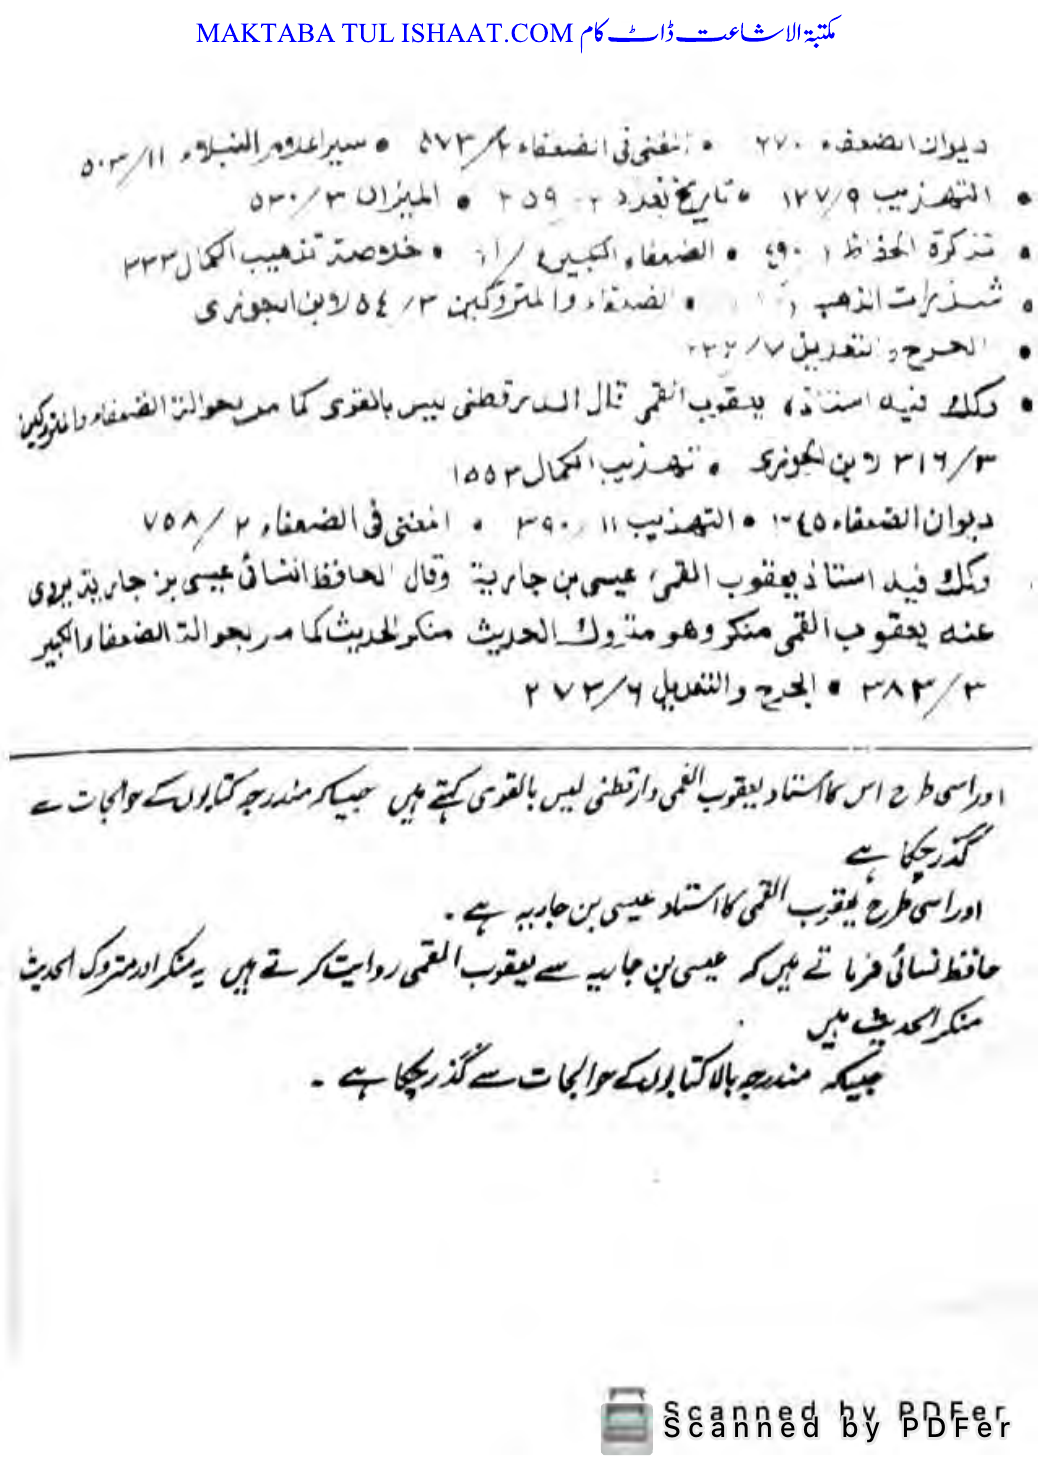 MAKTABA TUL ISHAAT.COM مکتبۃ الاشاعت ڈاٹ کام
دیوان الضعفاء ۲۷۰ • المغنی فی الضعفاء ۲/۵۷۳ • سیر اعلام النبلاء ۱۱/۵۰۳
• التهذیب ۹/۱۲۷ • تاریخ بغداد ۲۵۹ • المیزان ۳/۵۳۰
• تذکرة الحفاظ ۴۹۰ • الضعفاء الکبیر • خلاصة تذهیب الکمال ۳۳۳
• شذرات الذهب • الضعفاء والمتروکین ۳/۵٤ لابن الجوزی
• الجرح والتعدیل ۷/
• وکك فیه استاذه یعقوب القمی قال الدار قطنی لیس بالقوی کما مر بحوالة الضعفاء والمتروکین
۳/۲۱٦ لابن الجوزی • تهذیب الکمال ۱۵۵۳
دیوان الضعفاء ٤۵ • التهذیب ۱۱/۳۹۰ • المغنی فی الضعفاء ۲/۷۵۸
وکك فیه استاذ یعقوب القمی عیسی بن جاریة وقال الحافظ النسائی عیسی بن جاریة یروی
عنه یعقوب القمی منکر وهو متروك الحدیث منکر الحدیث کما مر بحوالة الضعفاء الکبیر
۳/۳۸۳ • الجرح والتعدیل ٦/۲۷۳
اور اسی طرح اس کا استاد یعقوب القمی دارقطنی لیس بالقوی کہتے ہیں جیسا کہ مندرجہ کتابوں کے حوالجات سے
گذر چکا ہے
اور اسی طرح یعقوب القمی کا استاد عیسی بن جاریہ ہے ۔
حافظ نسائی فرماتے ہیں کہ عیسی بن جاریہ سے یعقوب القمی روایت کرتے ہیں یہ منکر اور متروک الحدیث
منکر الحدیث ہیں
جیسا کہ مندرجہ بالا کتابوں کے حوالجات سے گذر چکا ہے ۔
Scanned by PDFer
Scanned by PDFer